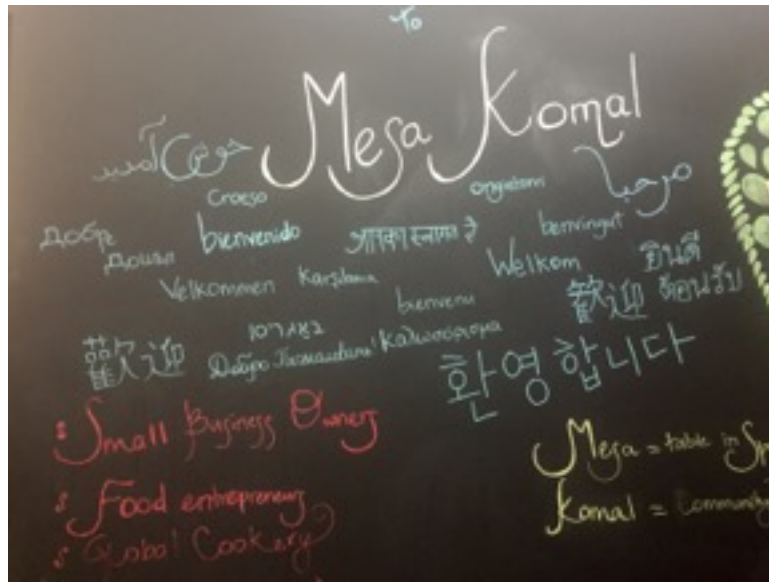 To
Mesa Komal
خوش آمدید
مرحبا
Croeso
ongietorri
Добре
дошъл
bienvenido
आपका स्वागत है
benvingut
Velkommen
Karşılama
Welkom
ยินดี
ต้อนรับ
bienvenu
歡迎
歡迎
Добро Пожаловать!
Καλωσόρισμα
환영합니다
Small Business Owners
Food entrepreneurs
Global Cookery
Mesa = table in Sp
Komal = Community